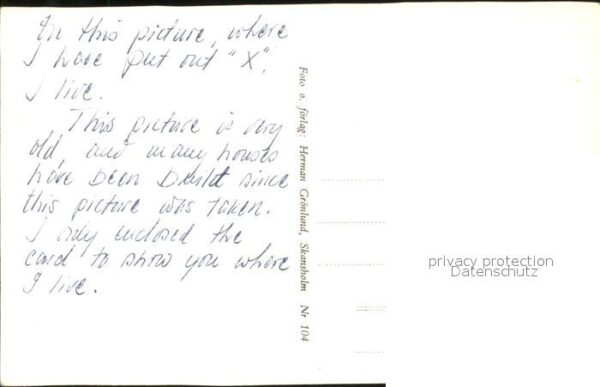 In this picture, where
I have put out "X",
I live.
This picture is very
old, and many houses
have been build since
this picture was taken.
I only enclosed the
card to show you where
I live.
Foto o. förlag: Herman Grönlund, Skansholm Nr 104
privacy protection
Datenschutz